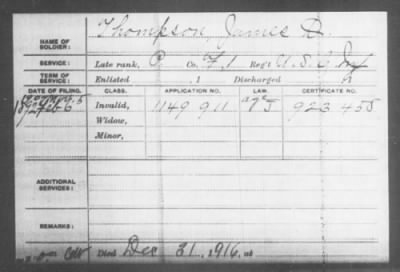 NAME OF SOLDIER: Thompson, James D.
SERVICE: Late rank, P. Co. F, 1 Reg't U. S. Inf
TERM OF SERVICE: Enlisted , 1 Discharged , 1
DATE OF FILING. CLASS. APPLICATION NO. LAW. CERTIFICATE NO.
Invalid, 1149 911 923 455
Widow,
Minor,
ADDITIONAL SERVICES:
REMARKS:
Died Dec 31, 1916, at